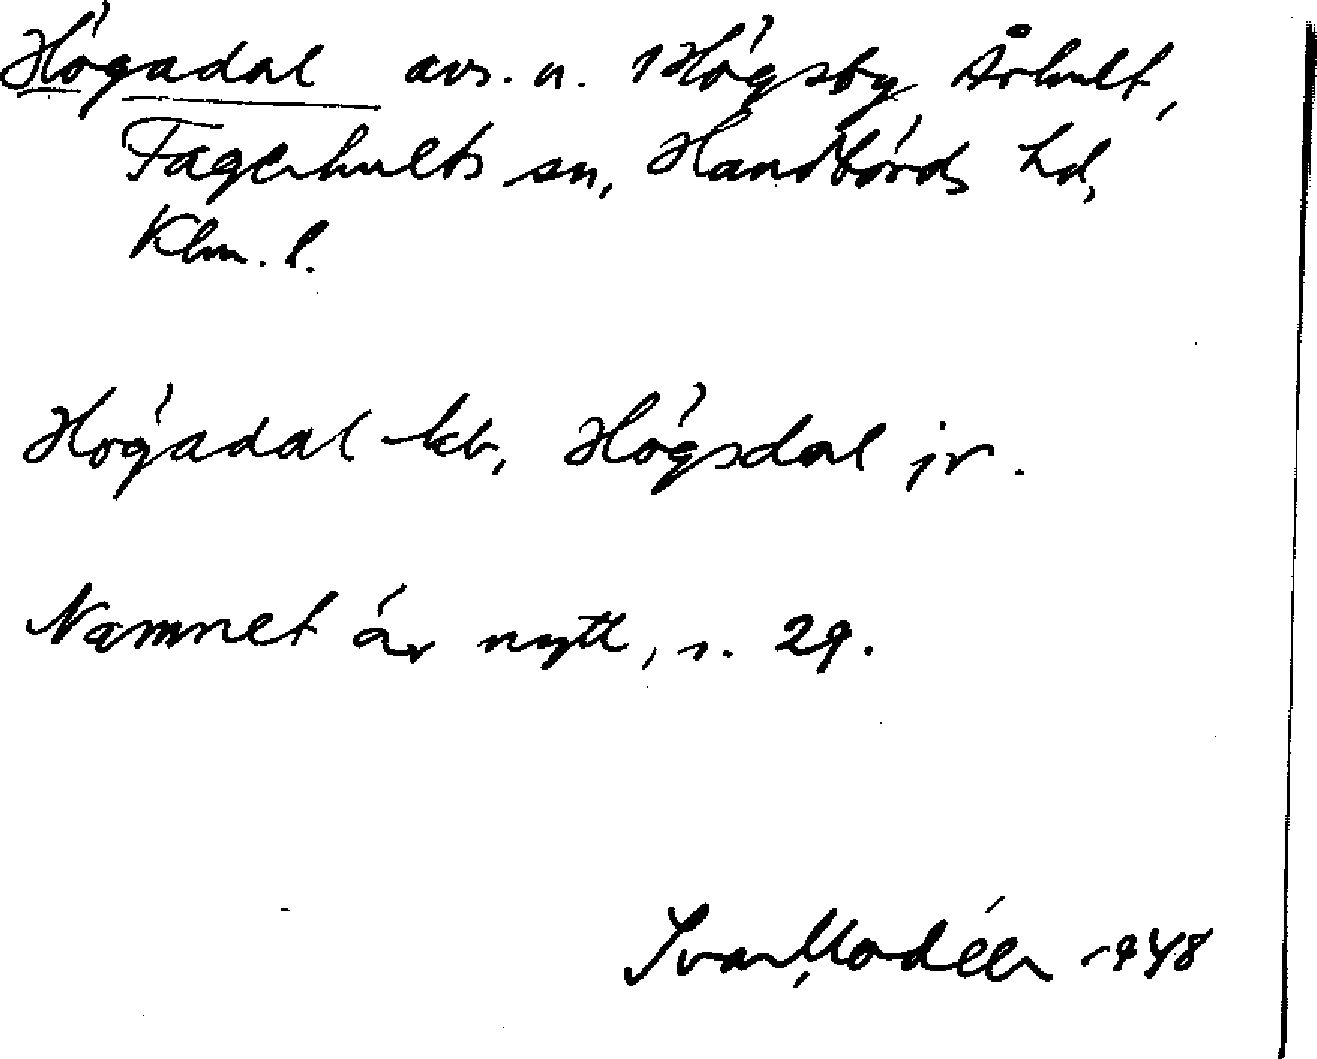 Högadal avs. u. 1 Högsby Århult,
Fagerhults sn, Handbörds hd,
Klm. l.
Högadal kb, Högsdal jr.
Namnet är nytt, s. 29.
Ivar Modéer 1948